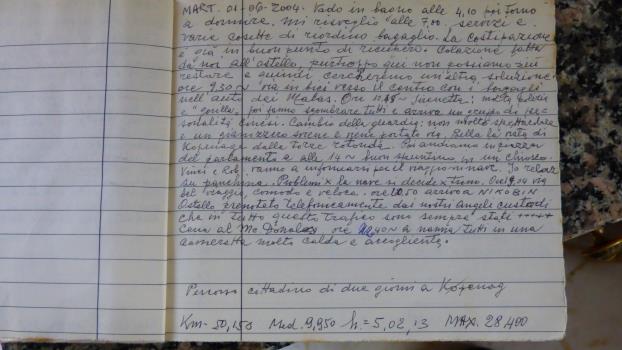 MART. 01-06-2004. Vado in bagno alle 4,10 poi torno
a dormire. Mi risveglio alle 7,00. servizi e
varie cosette di riordino bagaglio. La costipazione
è già in buon punto di Colazione fatta
da noi all'ostello, purtroppo qui non possiamo più
restare e quindi cercheremo un'altra soluzione.
ore 9,30 ~ via in bici verso il centro con i bagagli
nell'auto dei Ore molta polizia
e poi fanno sgombrare tutti e arriva un gruppo di per
sonalità cinesi. Cambio della guardia: non molto spettacolare
e un sviene e viene portato via. Bella la vista di
Kopenaga dalla torre rotonda. Poi andiamo in piazza
del parlamento e alle 14 ~ buon spuntino in un chiosco.
Vinci e Rob. vanno a informarsi per il viaggio in nave. Io relax
su panchina. Problemi x la nave si decide x treno. Ore via
bel viaggio, comodo e veloce. ore arrivo a
Ostello prenotato telefonicamente dai nostri Angeli custodi
che in tutto questo trafico sono sempre stati +++++
Cena al Mc Donalds, ore 22,40 ~ a nanna tutti in una
cameretta molto calda e accogliente.
Percorso cittadino di due giorni a Kopenag
Km - 50,150 Med. 9,950 h. = 5,02,13 MAX. 28,400